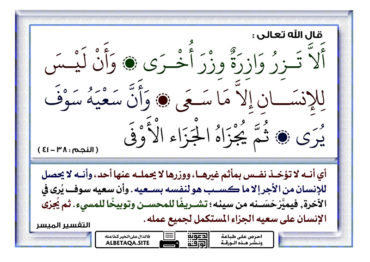 قال الله تعالى :
أَلاَّ تَـزِرُ وَازِرَةٌ وِزْرَ أُخْـرَى ۞ وَأَنْ لَيْـسَ
لِلإِنْسَــانِ إِلاَّ مَا سَـعَى ۞ وَأَنَّ سَعْيَهُ سَوْفَ
يُرَى ۞ ثُمَّ يُجْزَاهُ الْجَزَاء الْأَوْفَى
( النجم : ٣٨ - ٤١ )
أي أنـه لا تؤخـذ نفـس بمأثم غيرهـا، ووزرها لا يحملـه عنها أحد، وأنـه لا يحصل
للإنسان من الأجر إلا ما كسـب هو لنفسه بسـعيه. وأن سعيه سوف يُرى في
الآخرة, فيميَّز حَسَنه من سيئه؛ تشـريفًا للمحسـن وتوبيخًا للمسيء. ثم يُجزى
الإنسان على سعيه الجزاء المستكمل لجميع عمله .
التفسير الميسر
فالدال على الخير كفاعله
ALBETAQA.SITE
احرص على طباعة
ونشر هذه الورقة